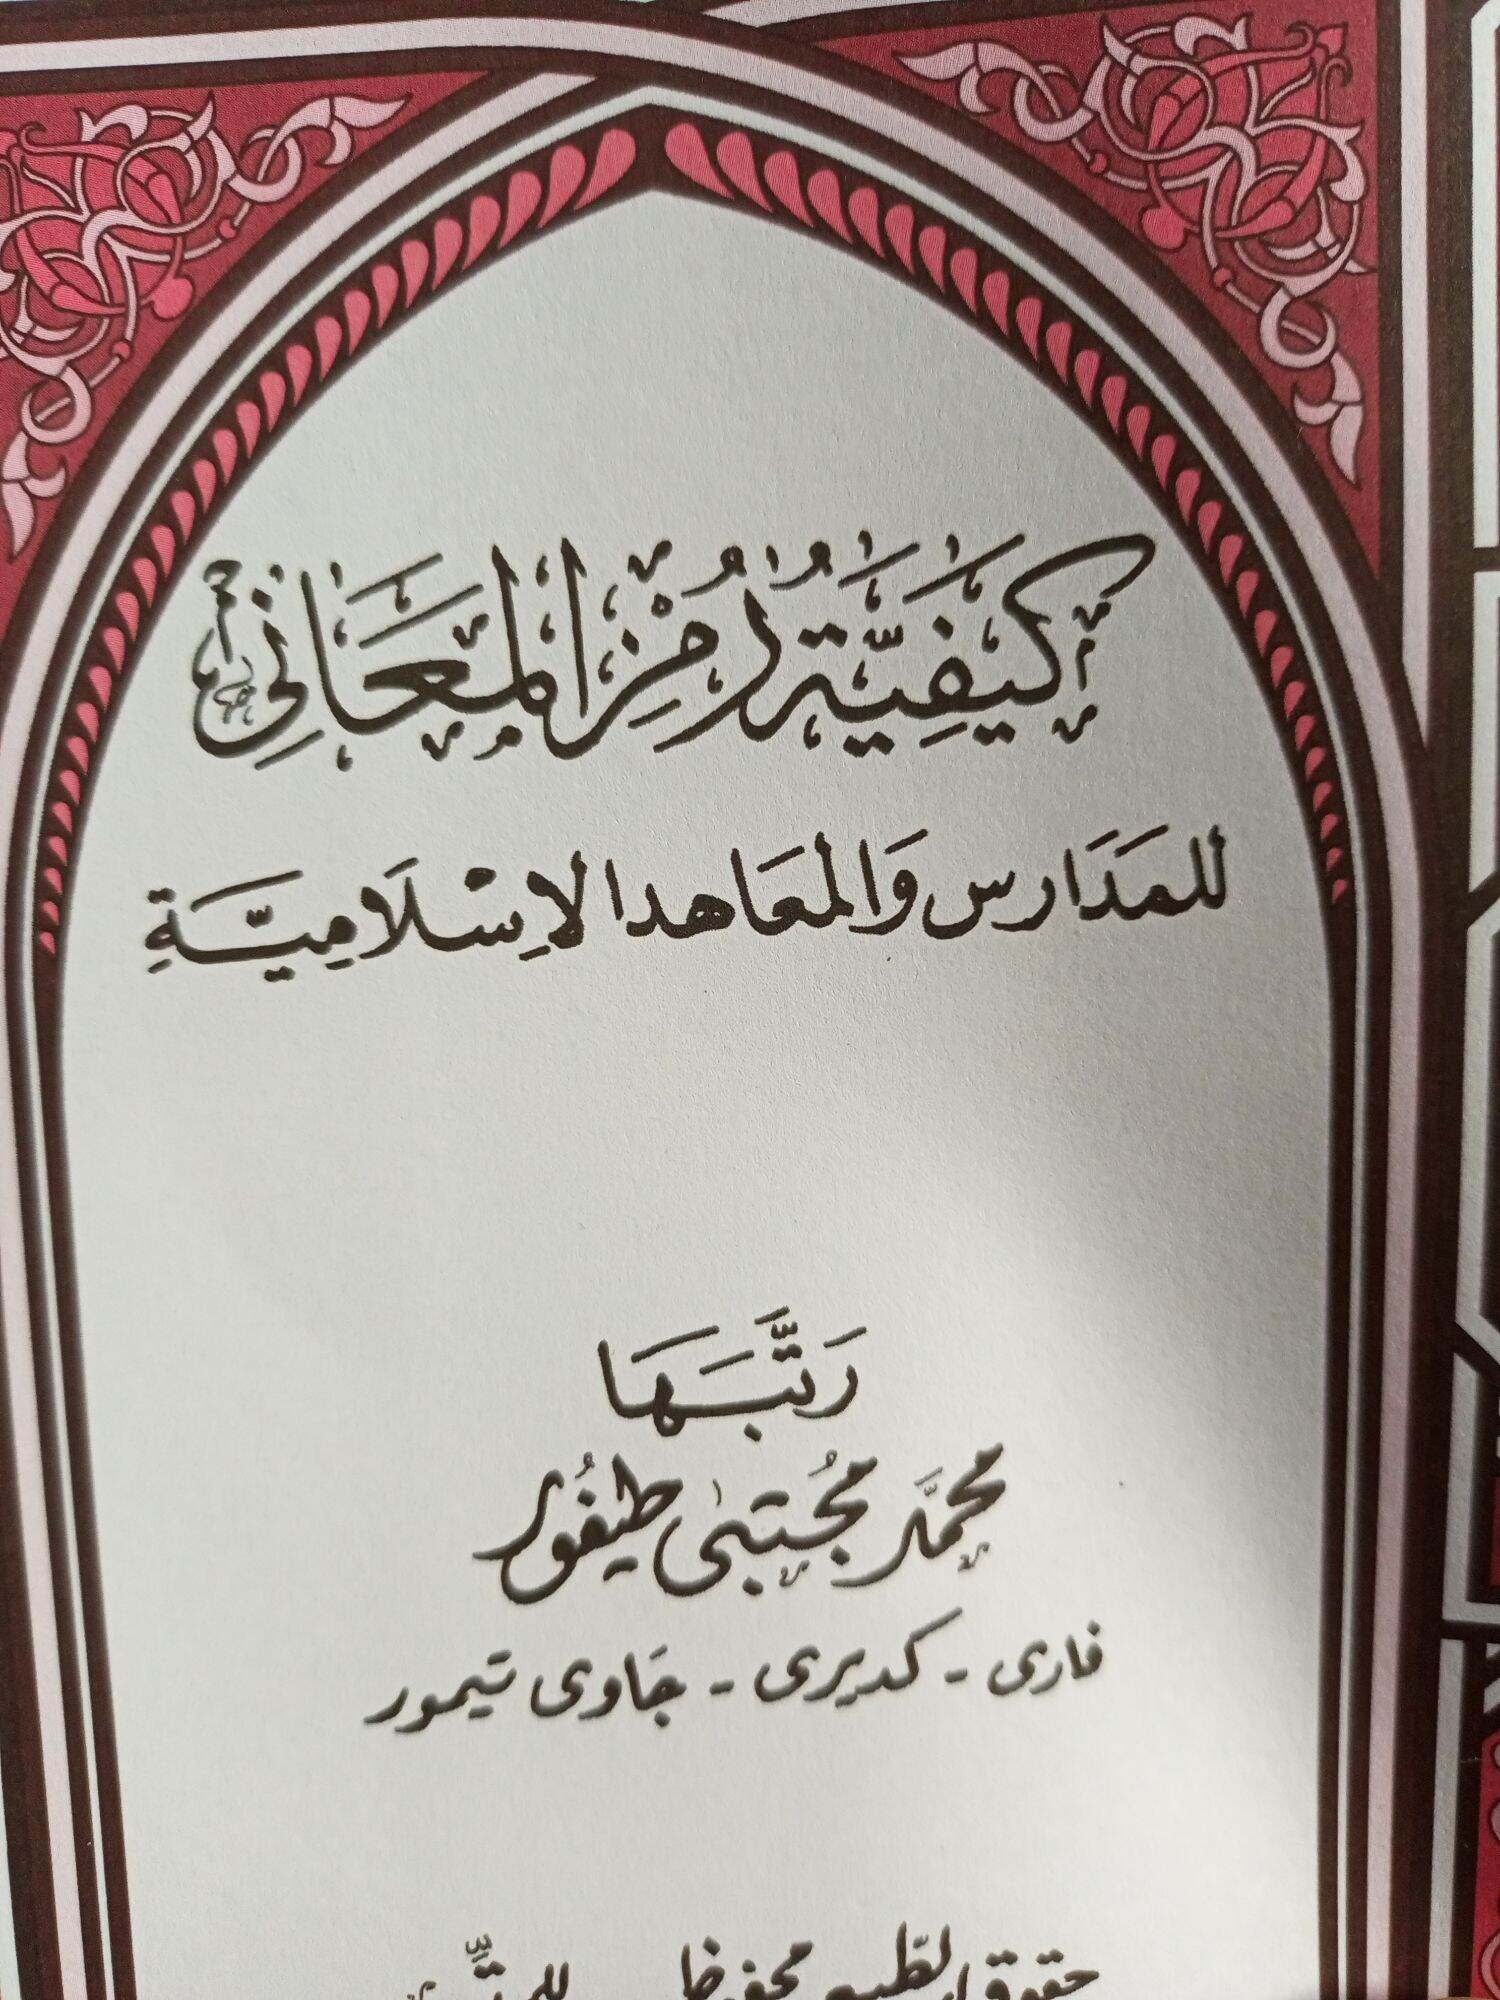 كَيْفِيَّةُ رُمْزِ الْمَعَانِي
للمَدَارس وَالمعَاهد الاِسْلَامِيَّةِ
رَتَّبَهَا
محمَّد مُجتبىٰ طيفُور
فارى - كديرى - جَاوى تيمور
حقوق الطّبع